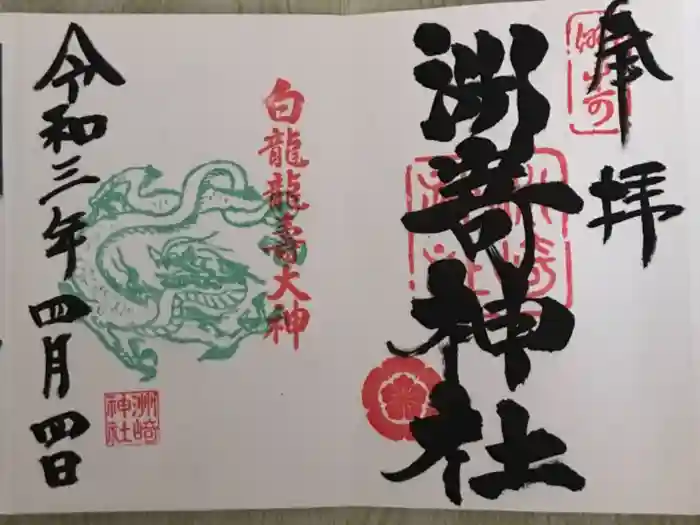 奉拝
洲嵜神社
洲崎
神社
白龍龍壽大神
令和三年四月四日
洲崎
神社